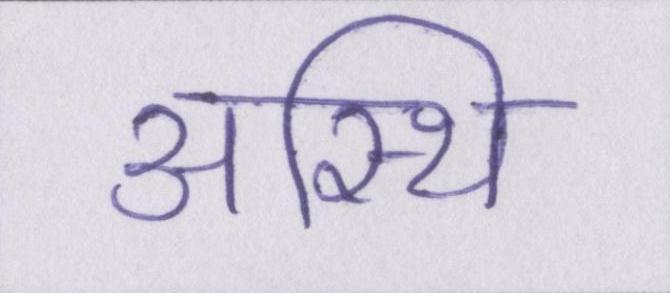 अस्थि